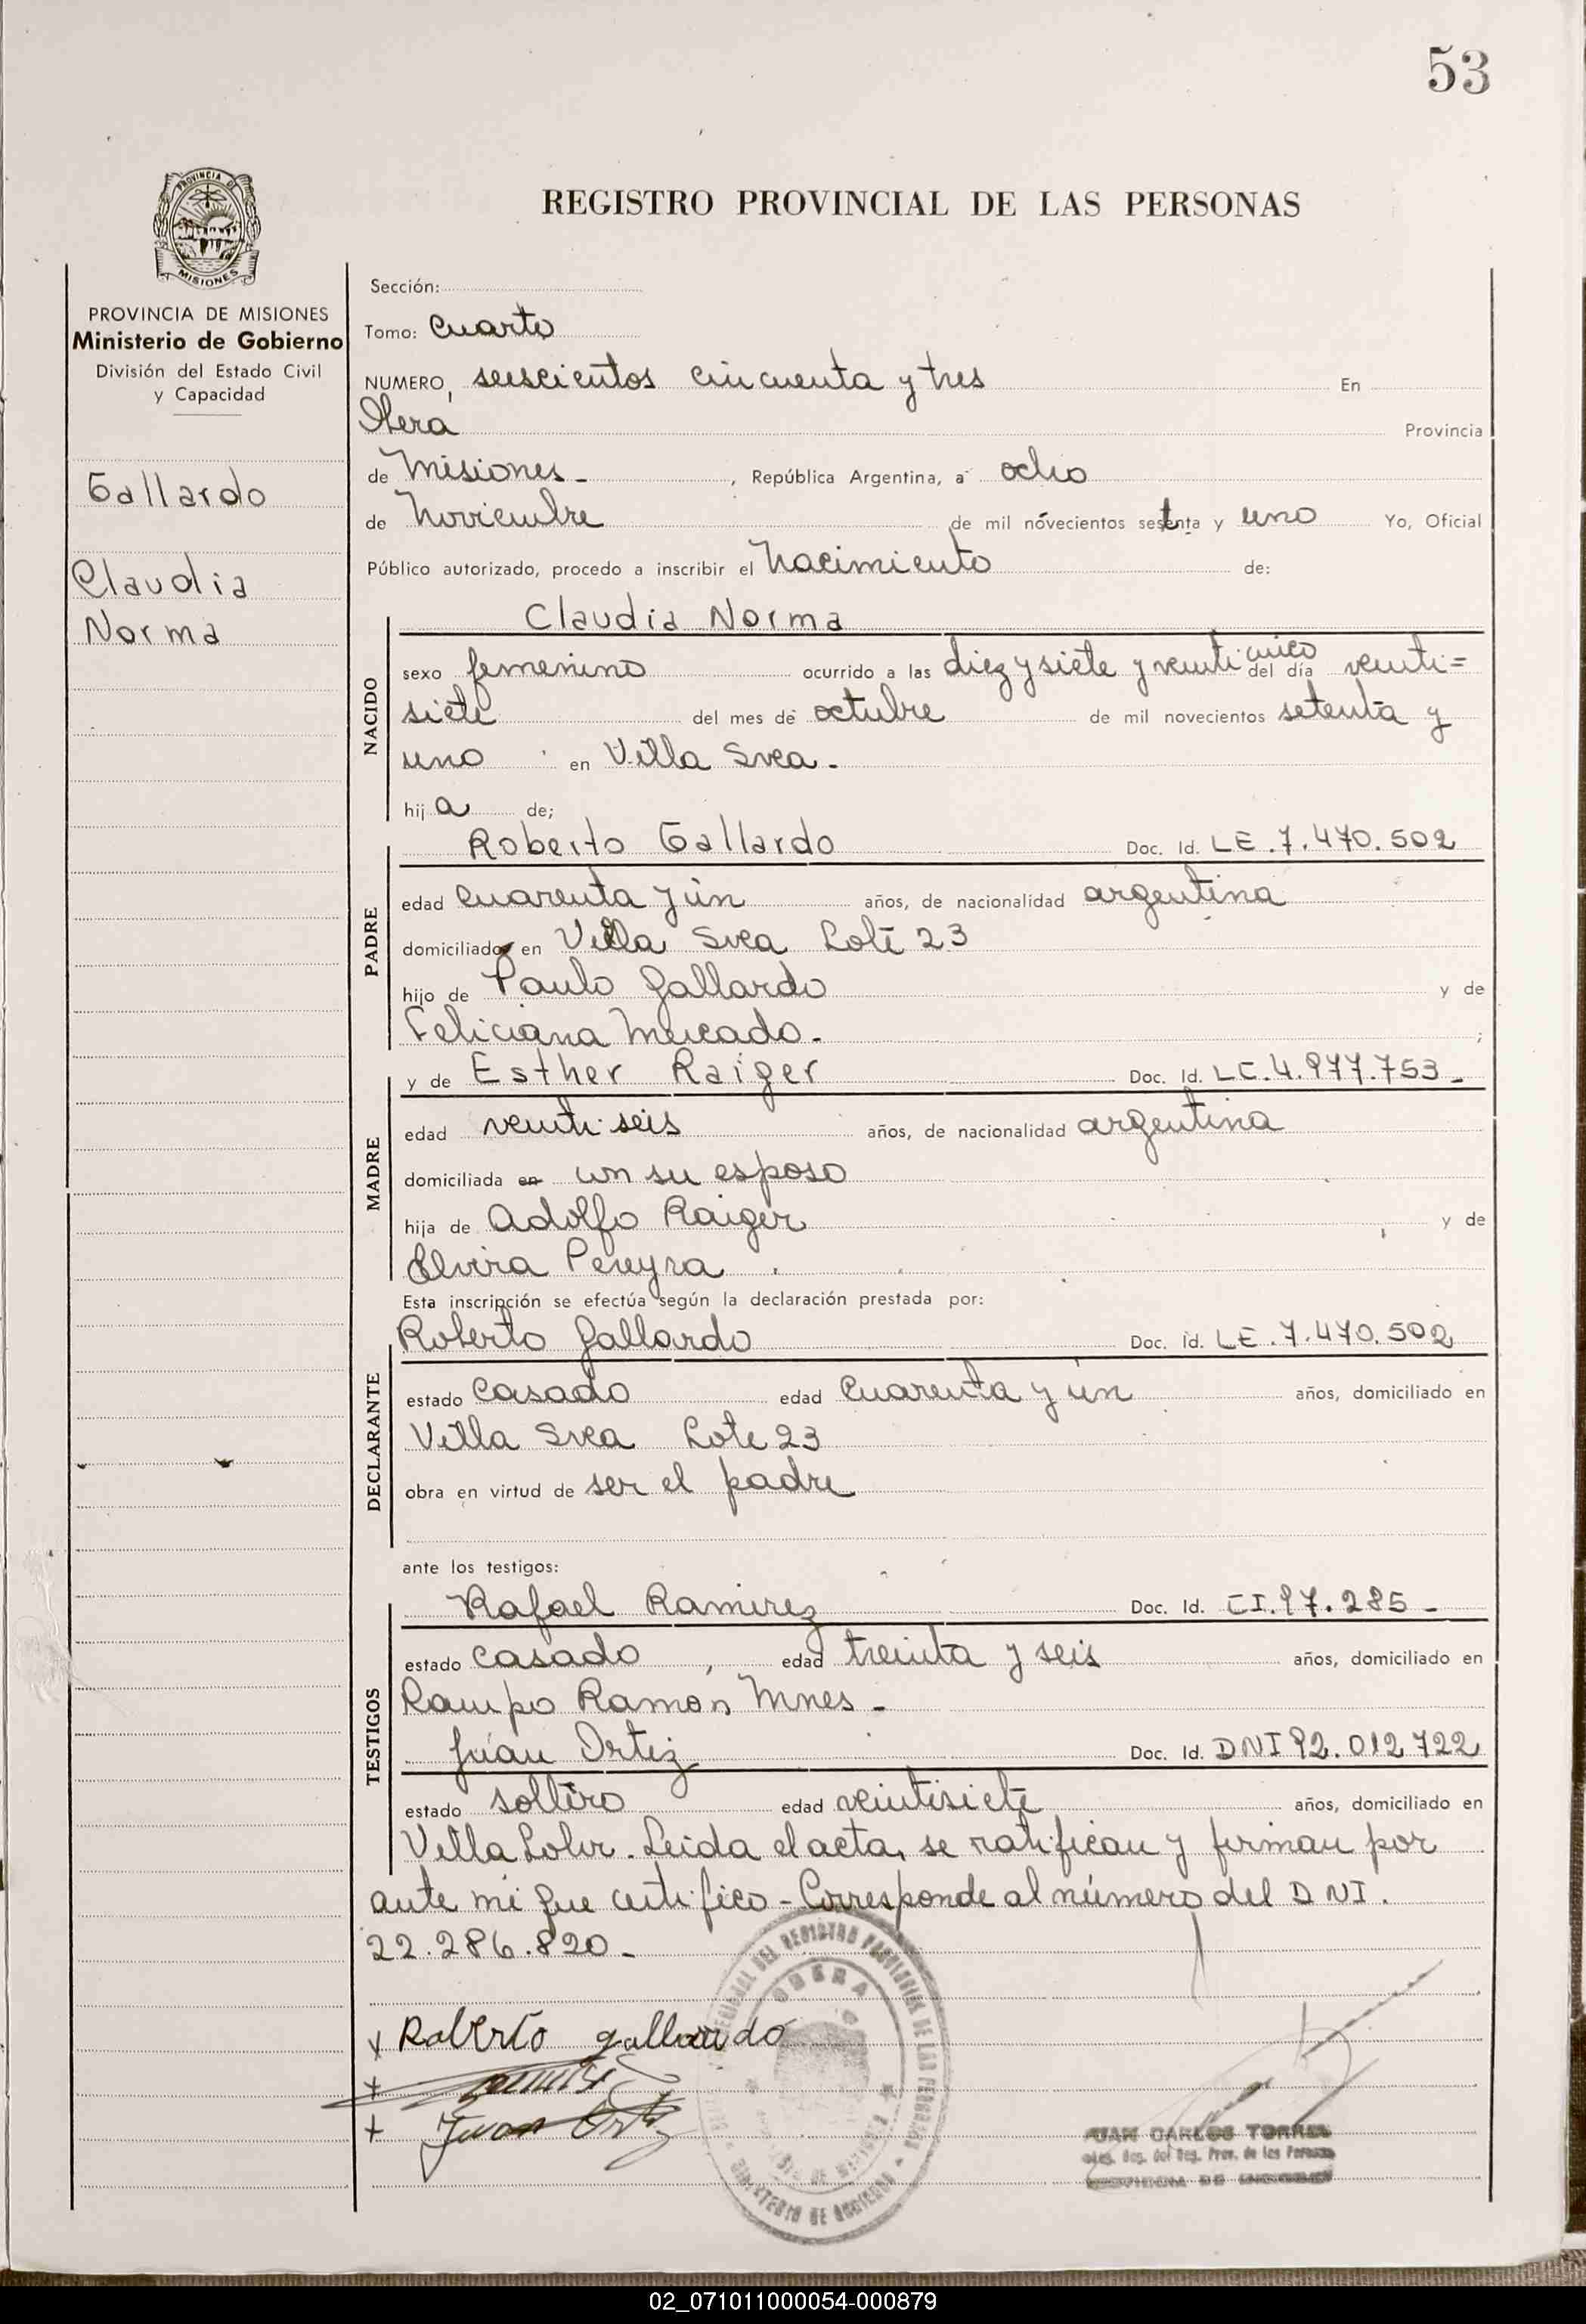 53
PROVINCIA DE
MISIONES
REGISTRO PROVINCIAL DE LAS PERSONAS
PROVINCIA DE MISIONES
Ministerio de Gobierno
División del Estado Civil
y Capacidad
Gallardo
Claudia
Norma
Sección:
Tomo: Cuarto
NUMERO, seiscientos cincuenta y tres En
Oberá Provincia
de Misiones - , República Argentina, a ocho
de Noviembre de mil novecientos setenta y uno Yo, Oficial
Público autorizado, procedo a inscribir el Nacimiento de:
NACIDO
Claudia Norma
sexo femenino ocurrido a las diez y siete y veinticinco del día veinti=
siete del mes de octubre de mil novecientos setenta y
uno en Villa Svea -
hij a de;
PADRE
Roberto Gallardo Doc. Id. LE. 7.470.502
edad cuarenta y ún años, de nacionalidad argentina
domiciliado en Villa Svea Lote 23
hijo de Paulo Gallardo y de
Feliciana Mercado - ;
MADRE
y de Esther Raiger Doc. Id. LC. 4.977.753 -
edad veinti seis años, de nacionalidad argentina
domiciliada en con su esposo
hija de Adolfo Raiger y de
Elvira Pereyra .
Esta inscripción se efectúa según la declaración prestada por:
DECLARANTE
Roberto Gallardo Doc. id. LE. 7.470.502
estado casado edad cuarenta y ún años, domiciliado en
Villa Svea Lote 23
obra en virtud de ser el padre
ante los testigos:
TESTIGOS
Rafael Ramirez Doc. Id. CI. 97.285 -
estado casado , edad treinta y seis años, domiciliado en
Campo Ramón Mnes -
Juan Ortiz Doc. Id. DNI 92.012.722
estado soltero edad veintisiete años, domiciliado en
Villa Lohr. Leida el acta, se ratifican y firman por
ante mi que certifico - Corresponde al número del DNI.
22.286.820 -
x Roberto gallardo
+
+ Juan Ortiz
OBERA
DEL REGISTRO PROVINCIAL DE LAS PERSONAS
MINISTERIO DE GOBIERNO
JUAN CARLOS TORRES
del Reg. Prov. de las Personas
02_071011000054-000879